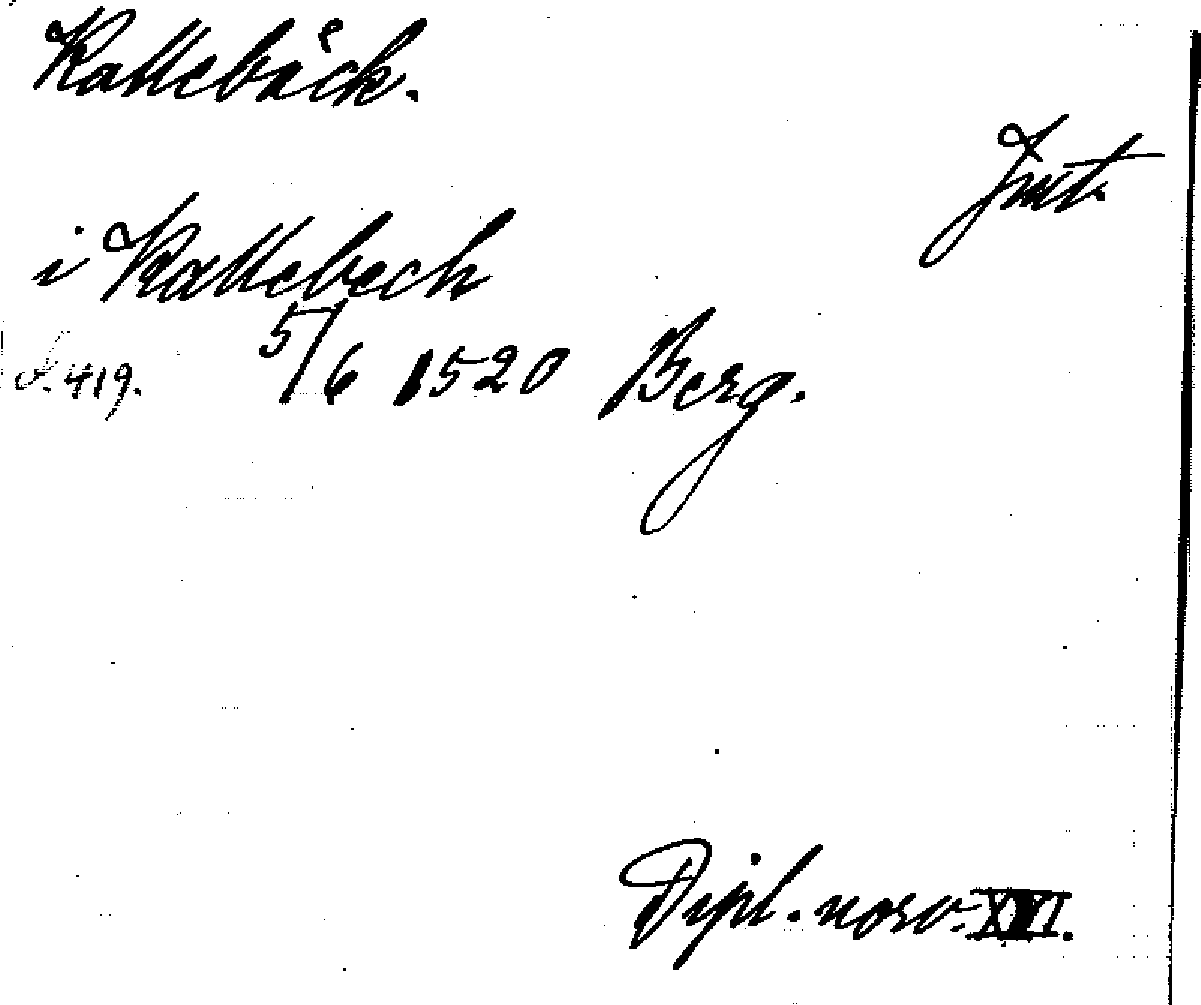 Kallebäck.
Jmt.
i Kallebech
s. 419. 5/6 1520 Berg.
Dipl. norv. XVI.